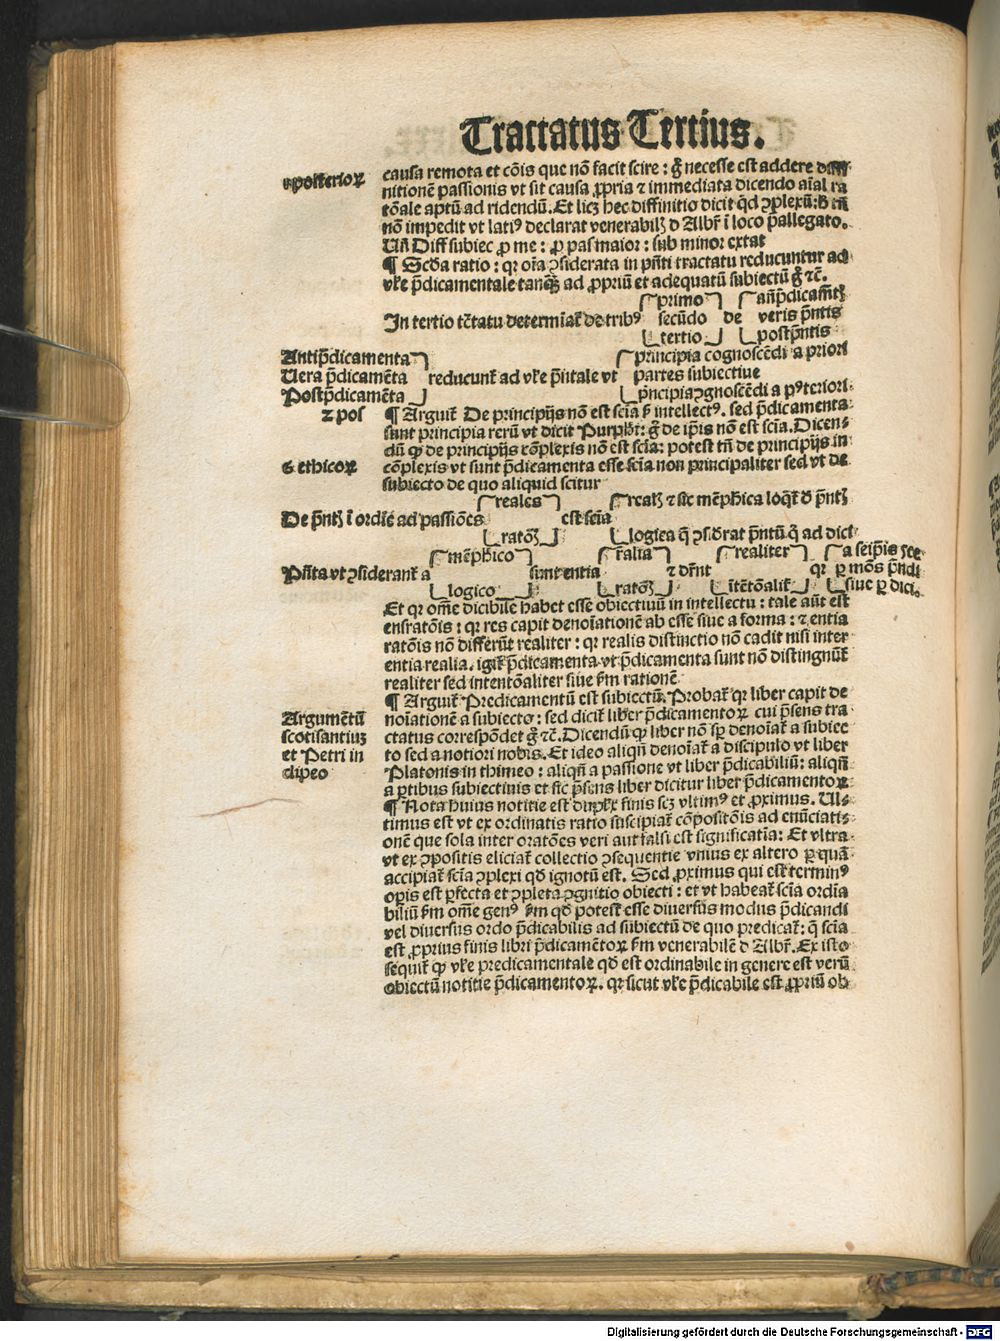 Tractatus Tertius.
causa remota et cōis que nō facit scire: g̊ necesse est addere
posterioꝝ
nitionē passionis vt sit causa ꝓpria ⁊ immediata dicendo aīal ra
tōale aptū ad ridendū. Et licꝫ hec diffinitio dicit qd̄ ꝯplexū: 
nō impedit vt latiꝰ declarat venerabilꝫ d Albr̄ ī loco p̄allegato.
Uñ Diff subiec ꝓ me: ꝓ pas maior: sub minor extat
¶ Scd̄a ratio: qꝛ oīa ꝯsiderata in pn̄ti tractatu reducuntur ad
vl̄e p̄dicamentale tanꝙ̄ ad ꝓpriū et adequatū subiectū g̊ ⁊c̄.
primo
secūdo
tertio
In tertio tc̄tatu determīat̄ de tribꝰ
de
veris p̄ntis
postp̄ntis
Antip̄dicamenta
Uera p̄dicamēta
Postp̄dicamēta
reducunt̄ ad vl̄e p̄ntale vt
principia cognoscēdi a priori
partes subiectiue
pn̄cipia ꝯgnoscēdi a pꝰteriori
2 pos
¶ Arguit̄ De principijs nō est scīa s̄ intellectꝰ. sed p̄dicamenta
sunt principia rerū vt dicit Purph̄: g̊ de ip̄is nō est scīa. Dicen-
dū ꝙ de principijs cōplexis nō est scīa: potest tn̄ de principijs in
6 ethicoꝝ
cōplexis vt sunt p̄dicamenta esse scīa non principaliter sed vt de
subiecto de quo aliquid scitur
De p̄ntꝫ ī ordīe ad passiōes
reales
ratōꝫ
est scīa
realꝫ ⁊ sic mēph̄ica loqt̄ d p̄ntꝫ
logica q̄ ꝯsid̄rat p̄ntū q̄ ad dici
Pn̄ta vt ꝯsiderant̄ a
mēph̄ico
logico
sunt entia
r̄alia
ratōꝫ
⁊ dr̄nt
realiter
ītētōalit̄
qꝛ
a seip̄is
ꝑ mōs p̄ndi
siue ꝑ dici.
Et qꝛ om̄e dicibile habet esse obiectiuū in intellectu: tale aūt est
ensratōis: qꝛ res capit denoīationē ab esse siue a forma: ⁊ entia
ratōis nō differūt realiter: qꝛ realis distinctio nō cadit nisi inter
entia realia. igit̄ p̄dicamenta vt p̄dicamenta sunt nō distingnūt̄
realiter sed intentōaliter siue s̄m rationē
¶ Arguit̄ Predicamentū est subiectū. Probat̄ qꝛ liber capit de
Argumētū
scotisantiuꝫ
et Petri in
clipeo
noīationē a subiecto: sed dicit̄ liber p̄dicamentoꝝ cui p̄sens tra
ctatus correspōdet g̊ ⁊c̄. Dicendū ꝙ liber nō sp̄ denoīat̄ a subiec
to sed a notiori nobis. Et ideo aliqn̄ denoīat̄ a discipulo vt liber
Platonis in thimeo: aliqn̄ a passione vt liber p̄dicabiliū: aliqn̄
a ꝑtibus subiectiuis et sic p̄sens liber dicitur liber p̄dicamentoꝝ
¶ Nota huius notitie est duplex finis scꝫ vltimꝰ et ꝓximus. Ul-
timus est vt ex ordinatis ratio suscipiat̄ cōpositōis ad enūciati-
onē que sola inter oratōes veri aut falsi est significatīa: Et vltra
vt ex ꝯpositis eliciat̄ collectio ꝯsequentie vnius ex altero ꝑ quā
accipiat̄ scīa ꝯplexi qd̄ ignotū est. Sed ꝓximus qui est terminꝰ
oꝑis est ꝑfecta et ꝯpleta ꝯgnitio obiecti: et vt habeat̄ scīa ordīa
biliū s̄m om̄e genꝰ s̄m qd̄ potest esse diuersus modus p̄dicandi
vel diuersus ordo p̄dicabilis ad subiectū de quo predicat̄: q̄ scīa
est ꝓprius finis libri p̄dicamētoꝝ s̄m venerabilē d Albr̄. Ex isto
sequit̄ ꝙ vl̄e predicamentale qd̄ est ordinabile in genere est verū
obiectū notitie p̄dicamentoꝝ. qꝛ sicut vl̄e p̄dicabile est ꝓpriū ob
Digitalisierung gefördert durch die Deutsche Forschungsgemeinschaft - DFG